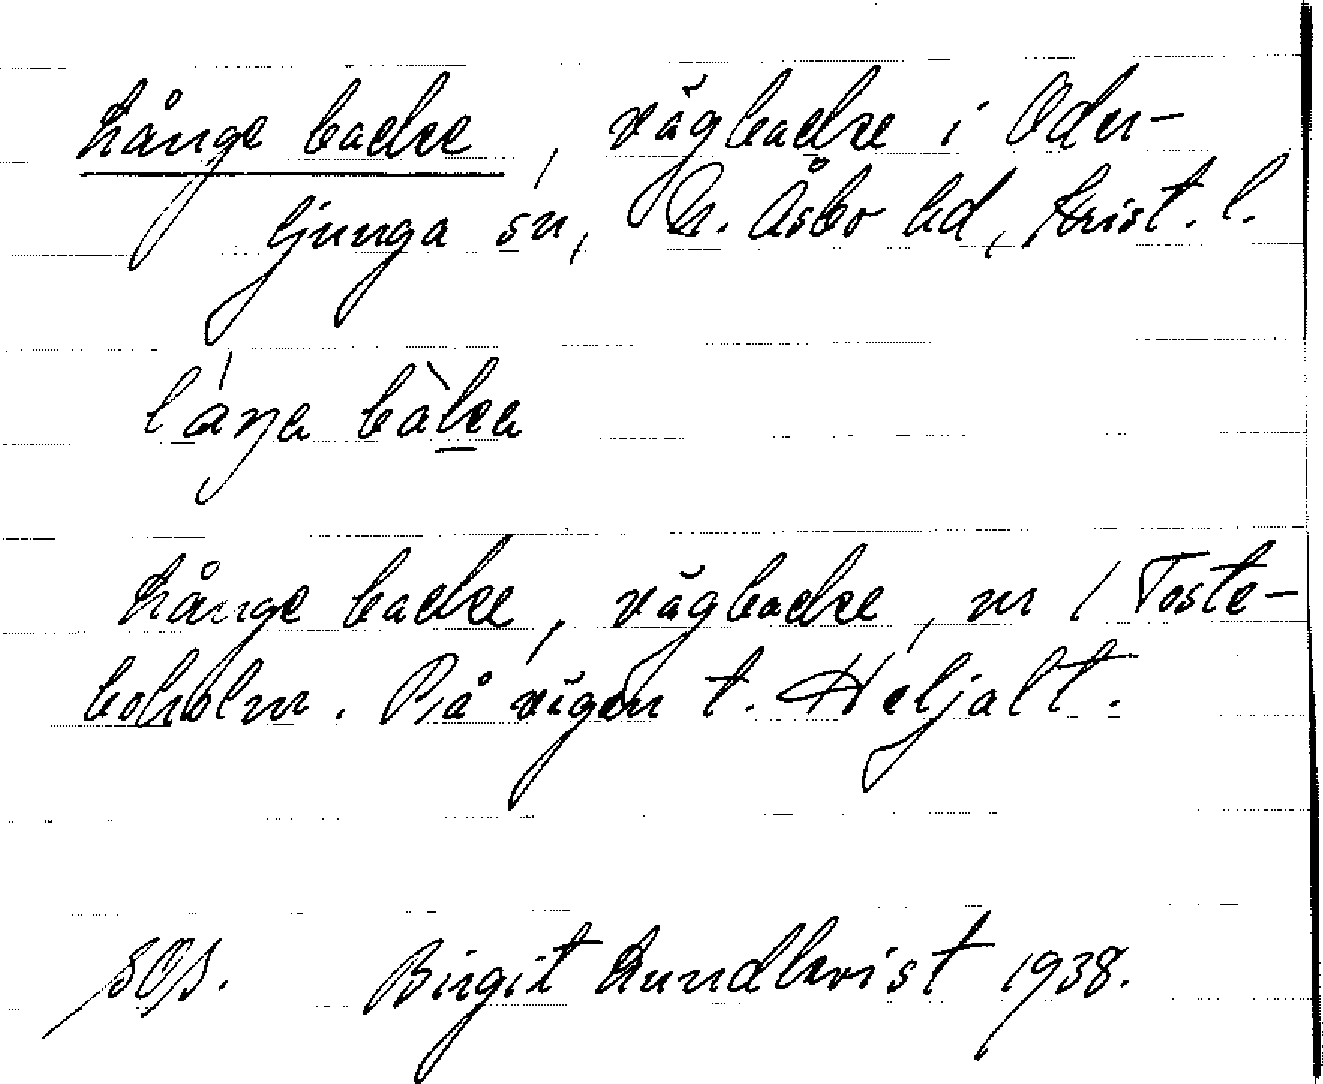 Långe backe, vägbacke i Oder-
ljunga sn, N. Åsbo hd, Krist. l.
láŋa bàka
Långe backe, vägbacke, nr 1 Toste-
boholm. På vägen t. Heljalt.
Birgit Lundkvist 1938.